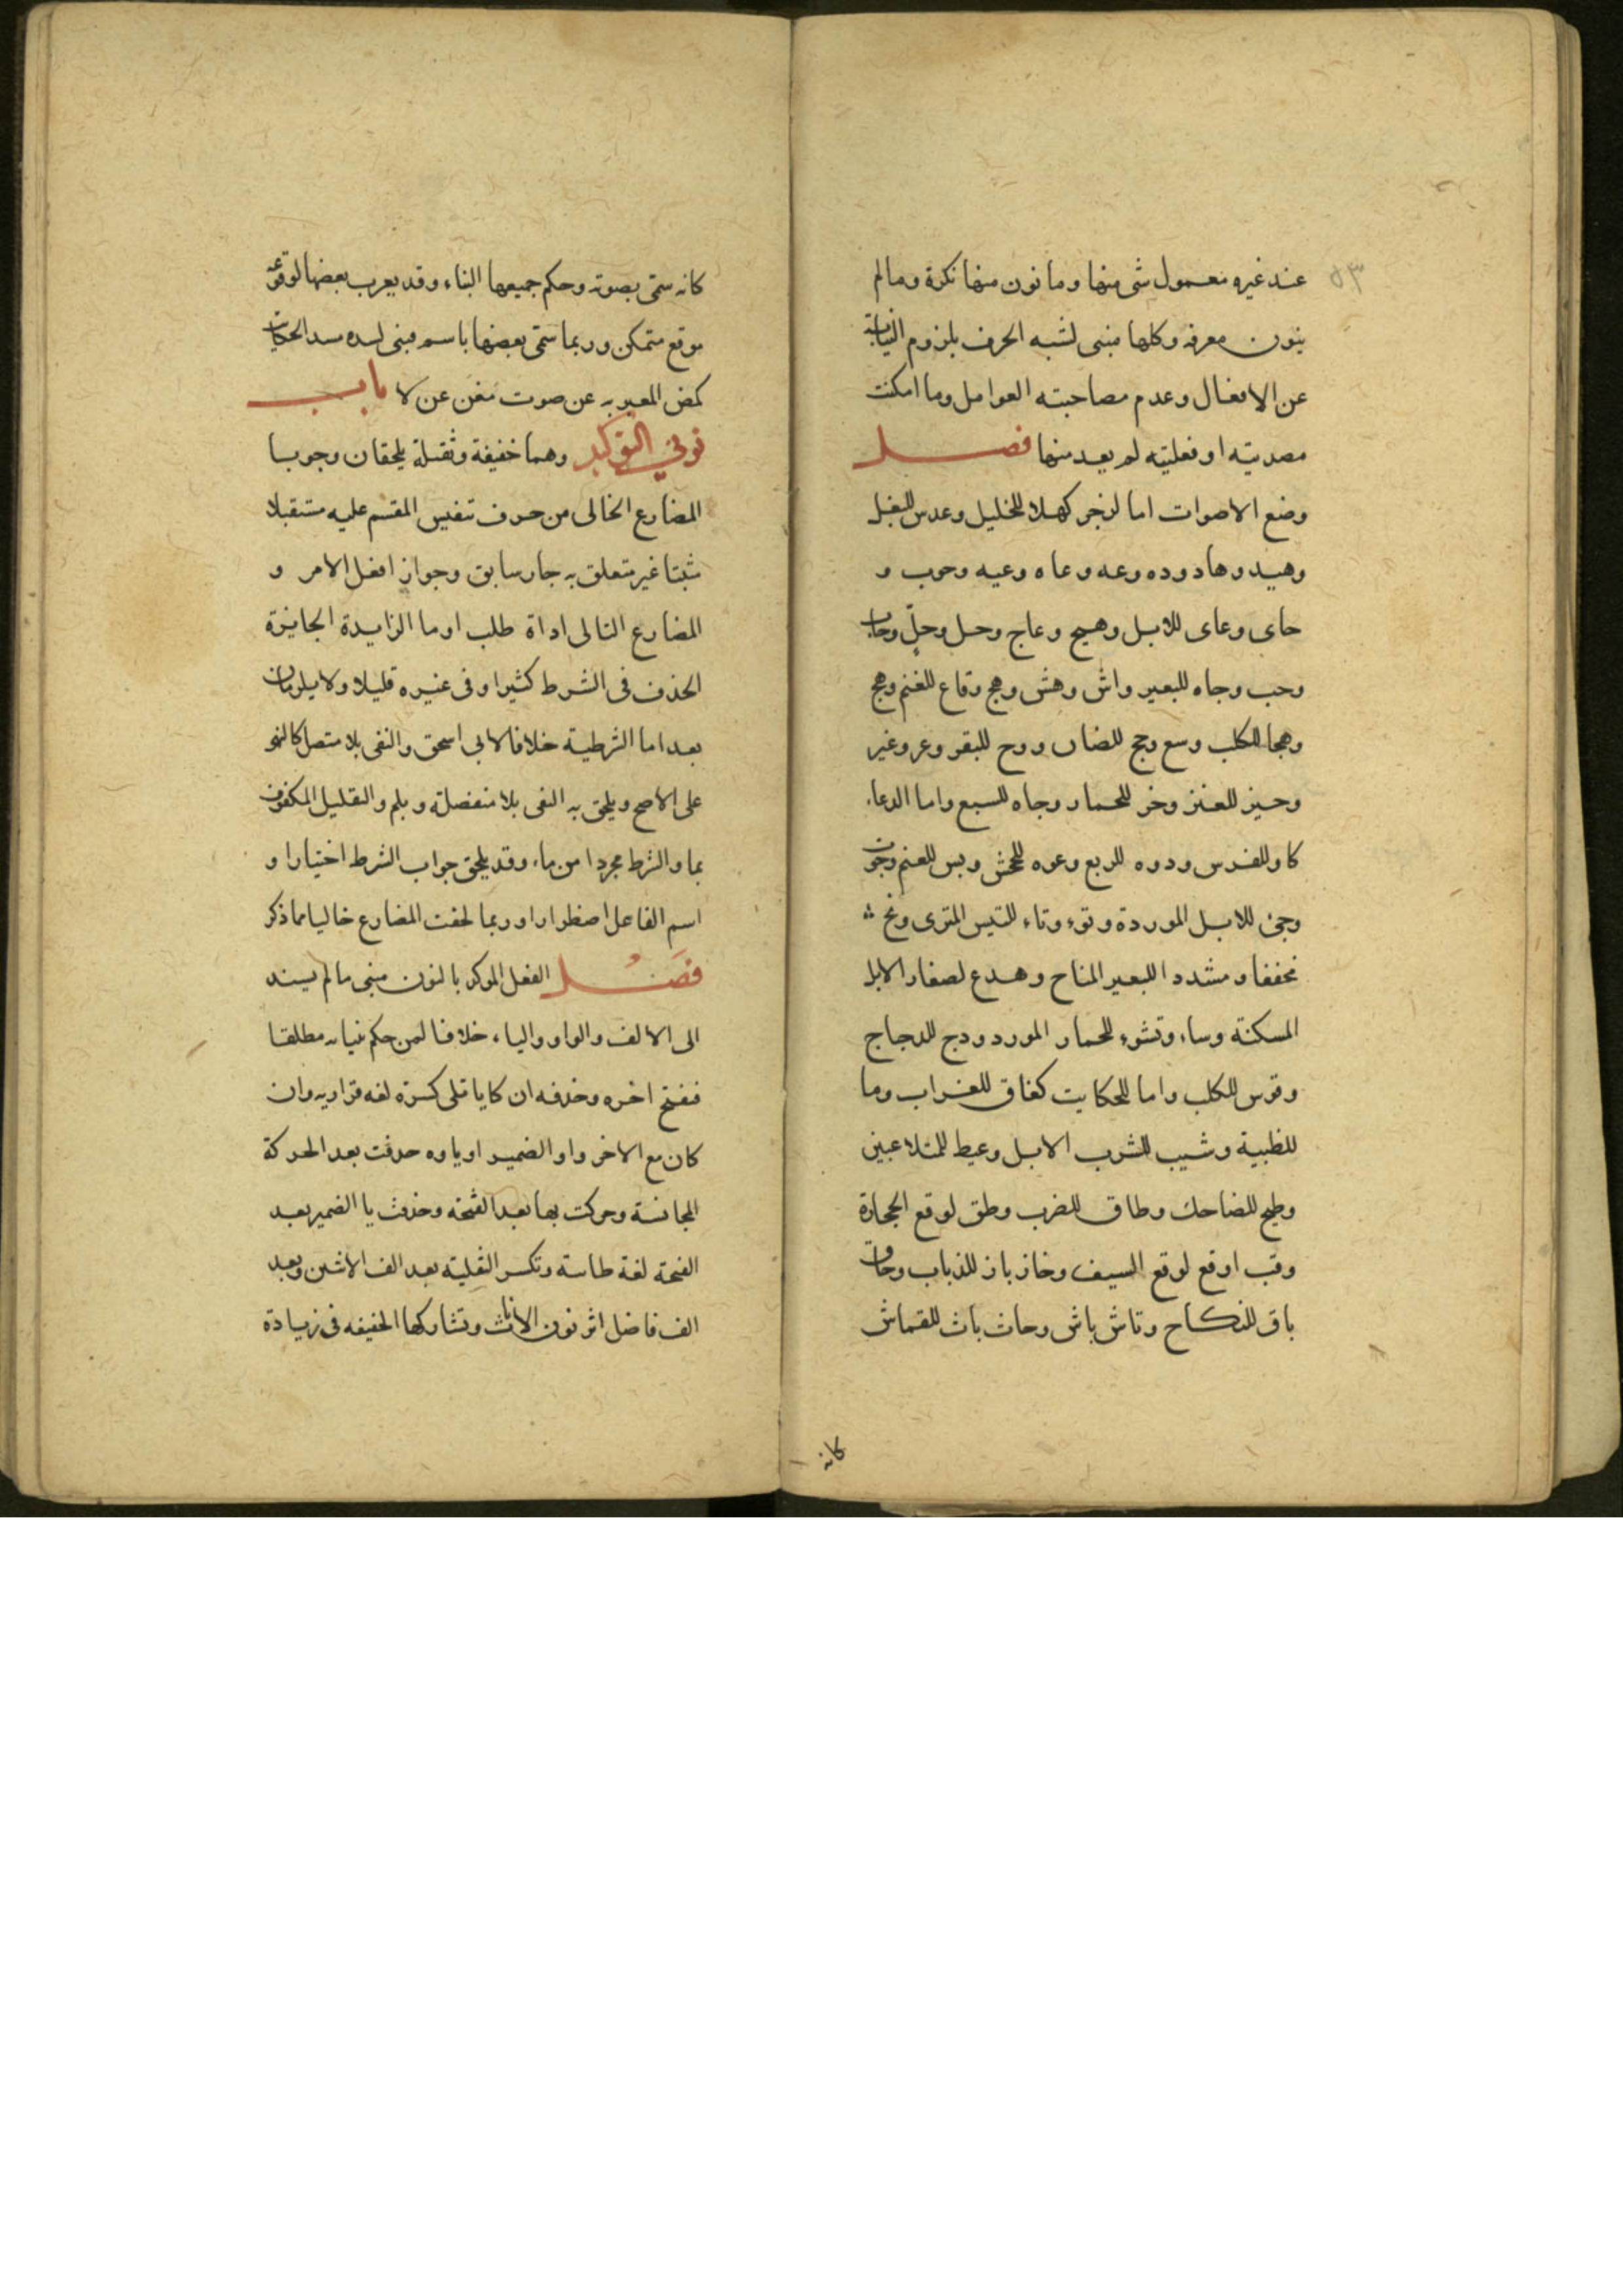 ٥٣
عند غيره معمول شى منها وما نون منها نكرة ومالم
ينون معرفه وكلها مبنى لشبه الحرف بلزوم النيابة
عن الافعال وعدم مصاحبته العوامل وما امكنت
مصدريته او فعليته لم يعد منها فصل
وضع الاصوات اما لزجر كهلا للخليل وعدس للبغل
وهيد وهاد وده وعه وعاه وعيه وحوب و
حاى وعاى للابل وهيج وعاج وحل وحلٍ وحاب
وحب وجاه للبعير واش وهش وهج وقاع للغنم وهج
وهجا للكلب وسع وحج للضان ووح للبقر وعز وعيز
وحيز للعنز وخر للحمار وجاه للسبع واما الدعاء
كاو للفرس ودوه للربع وعوه للجحش وبس للغنم وجوت
وجئ للابل الموردة وتوء وتاء للتيس المنزى ونخ
مخففا ومشددا للبعير المناح وهدع لصغار الابل
المسكنة وساء وتشوء للحمار المورد ودج للدجاج
وقوس للكلب واما للحكايت كغاق للغراب وما
للظبية وشيب للشرب الابل وعيط للمتلاعبين
وطيح للضاحك وطاق للضرب وطق لوقع الحجارة
وقب اوقع لوقع السيف وخاز باز للذباب وخاق
باق للنكاح وتاش باش وحاث باث للقماش
كانه
كانه سمى بصوته وحكم جميعها البناء وقد يعرب بعضها لوقوعه
موقع متمكن وربما سمى بعضها باسم مبنى لسده مسد الحكايت
كمض المعبر به عن صوت مغن عن لا باب
نوني التوكيد وهما خفيفة وثقيلة يلحقان وجوبا
المضارع الخالى من حرف تنفيس المقسم عليه مستقبلا
مثبتا غير متعلق به جار سابق وجواز افعل الامر و
المضارع التالى اداة طلب او ما الزايدة الجايزة
الحذف فى الشرط كثيرا وفى غيره قليلا ولا يلزمان
بعد اما الشرطية خلافا لابى اسحق والنفى بلا متصل كالنهو
على الاصح ويلحق به النفى بلا منفصلة وبلم والتقليل المكفوف
بما والشرط مجردا من ماء وقد يلحق جواب الشرط اختيارا و
اسم الفاعل اضطرارا وربما لحقت المضارع خاليا مما ذكر
فصل الفعل الموكد بالنون مبنى مالم يسند
الى الالف والواو والياء خلافا لمن حكم ببنيانه مطلقا
فيفتح اخره وحذفه ان كا يا تلى كسرة لغه فزاريه وان
كان مع الاخر واو الضمير او ياوه حدفت بعد الحركة
المجانسة وحركت بها بعد الفتحة وحذفت يا الضمير بعد
الفتحة لغة طاسة وتكسر الثقلية بعد الف الاثنين وبعد
الف فاضل اثر نون الاناث وتشاركها الخفيفه فى زيادة